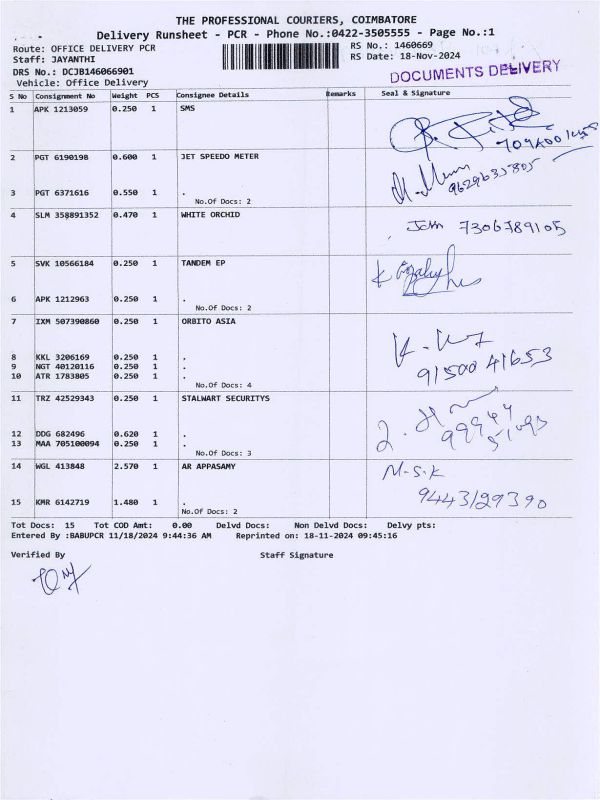 THE PROFESSIONAL COURIERS, COIMBATORE
Delivery Runsheet - PCR - Phone No.:0422-3505555 - Page No.:1
Route: OFFICE DELIVERY PCR
RS No.: 1460669
Staff: JAYANTHI
RS Date: 18-Nov-2024
DRS No.: DCJB146066901
DOCUMENTS DELIVERY
Vehicle: Office Delivery
S No Consignment No Weight PCS Consignee Details Remarks Seal & Signature
1 APK 1213059 0.250 1 SMS
2 PGT 6190198 0.600 1 JET SPEEDO METER
9629635805
3 PGT 6371616 0.550 1 .
No.Of Docs: 2
4 SLM 358891352 0.470 1 WHITE ORCHID
John 7306789105
5 SVK 10566184 0.250 1 TANDEM EP
6 APK 1212963 0.250 1 .
No.Of Docs: 2
7 IXM 507390860 0.250 1 ORBITO ASIA
8 KKL 3206169 0.250 1 .
9 NGT 40120116 0.250 1 .
91500 41653
10 ATR 1783805 0.250 1 .
No.Of Docs: 4
11 TRZ 42529343 0.250 1 STALWART SECURITYS
12 DDG 682496 0.620 1 .
13 MAA 705100094 0.250 1 .
No.Of Docs: 3
14 WGL 413848 2.570 1 AR APPASAMY
M-S-K
15 KMR 6142719 1.480 1 .
9443129390
No.Of Docs: 2
Tot Docs: 15 Tot COD Amt: 0.00 Delvd Docs: Non Delvd Docs: Delvy pts:
Entered By :BABUPCR 11/18/2024 9:44:36 AM Reprinted on: 18-11-2024 09:45:16
Verified By Staff Signature